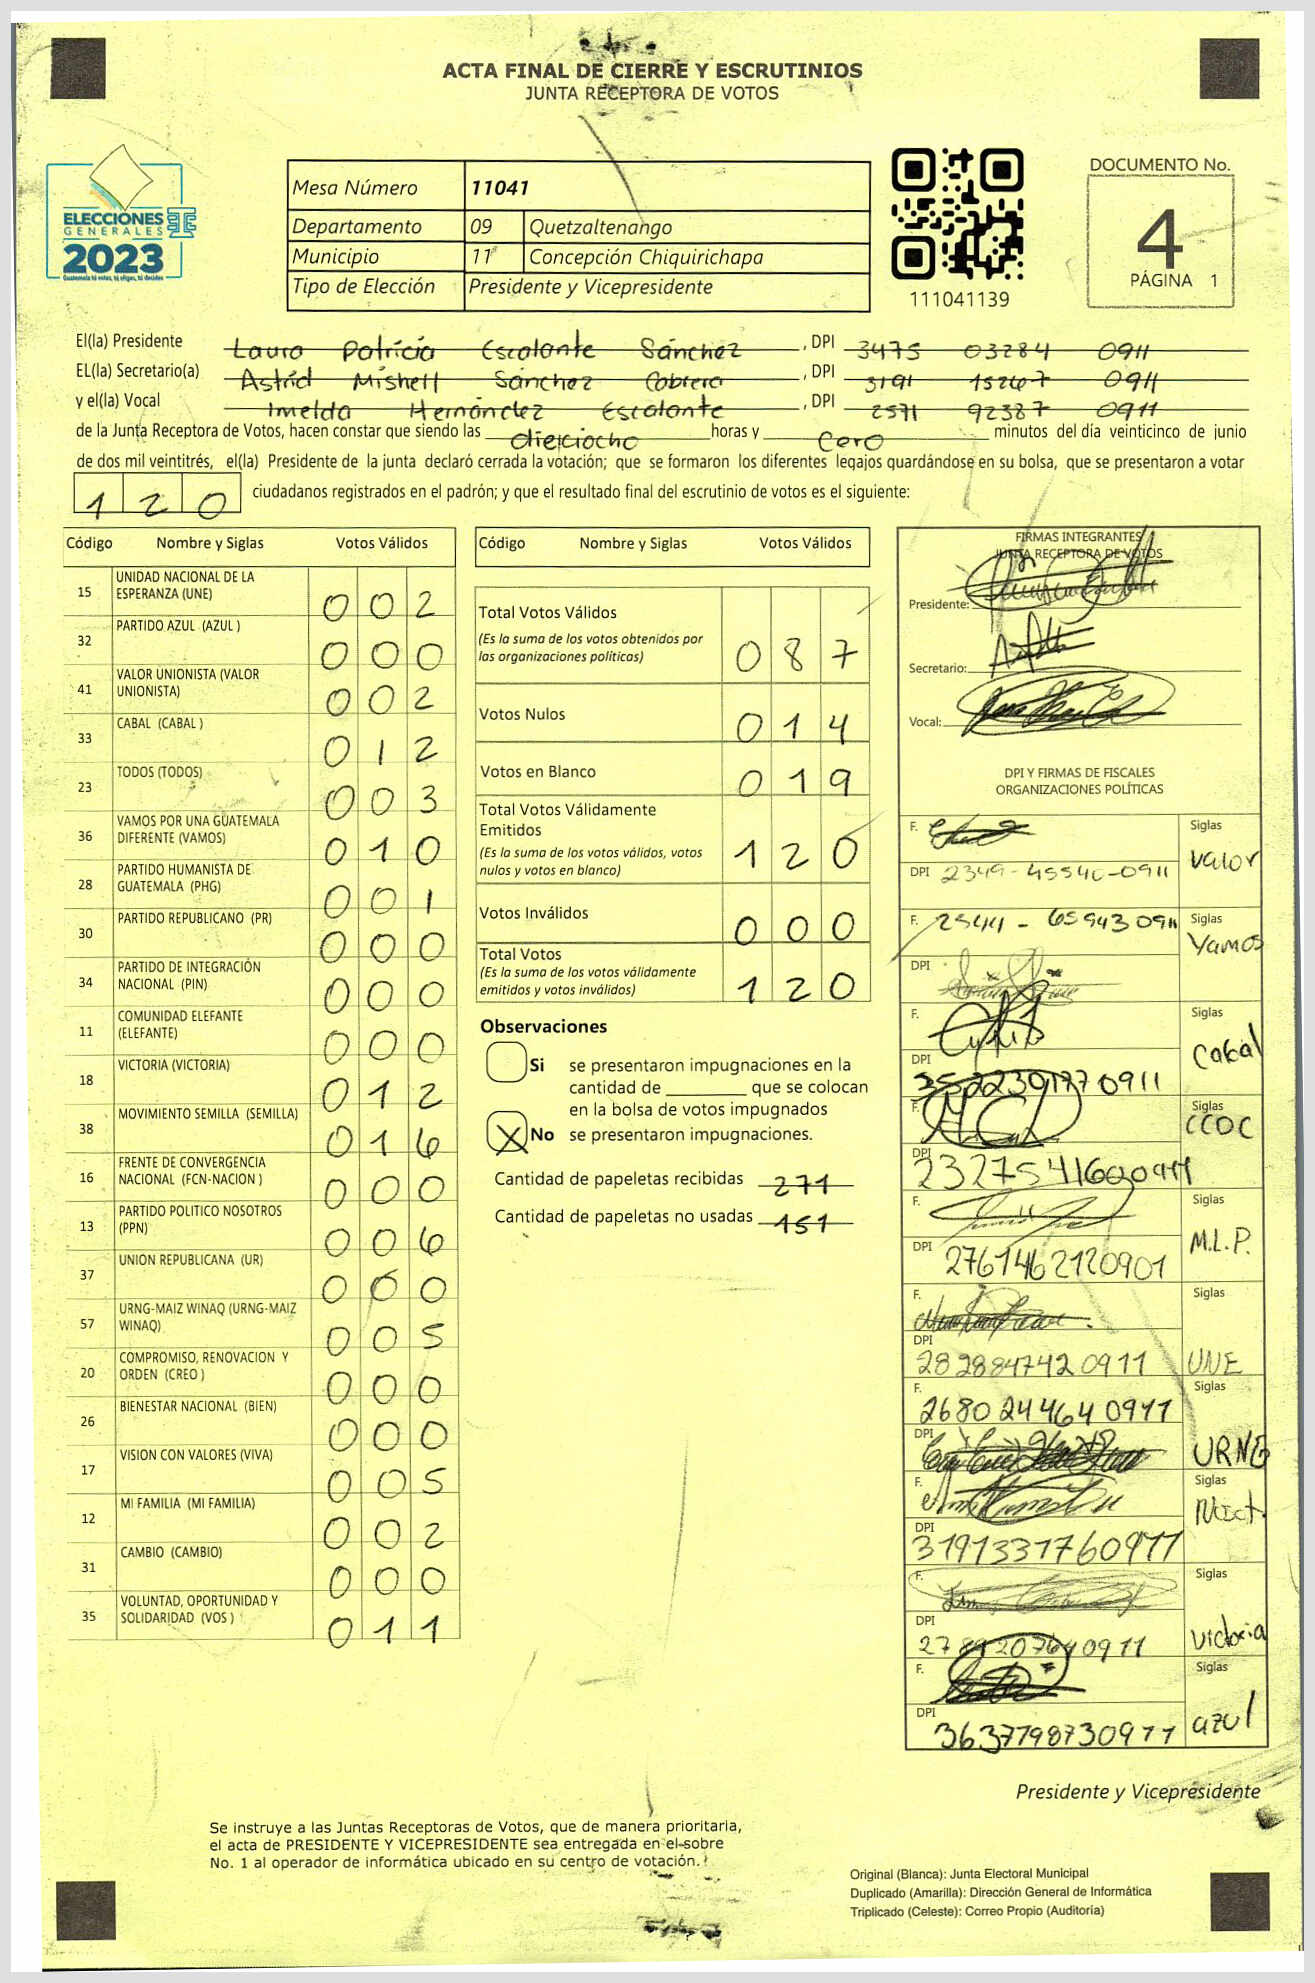 ACTA FINAL DE CIERRE Y ESCRUTINIOS
JUNTA RECEPTORA DE VOTOS
ELECCIONES
GENERALES
2023
Guatemala tú votas, tú eliges, tú decides
Mesa Número 11041
Departamento 09 Quetzaltenango
Municipio 11 Concepción Chiquirichapa
Tipo de Elección Presidente y Vicepresidente
111041139
DOCUMENTO No.
4
PÁGINA 1
El(la) Presidente Laura Patricia Escalante Sánchez, DPI 3475 03284 0911
EL(la) Secretario(a) Astrid Mishell Sánchez Cabrera, DPI 3191 15267 0911
y el(la) Vocal Imelda Hernández Escalante, DPI 2571 92387 0911
de la Junta Receptora de Votos, hacen constar que siendo las dieciocho horas y cero minutos del día veinticinco de junio
de dos mil veintitrés, el(la) Presidente de la junta declaró cerrada la votación; que se formaron los diferentes legajos guardándose en su bolsa, que se presentaron a votar
120 ciudadanos registrados en el padrón; y que el resultado final del escrutinio de votos es el siguiente:
Código Nombre y Siglas Votos Válidos
15 UNIDAD NACIONAL DE LA ESPERANZA (UNE) 002
32 PARTIDO AZUL (AZUL ) 000
41 VALOR UNIONISTA (VALOR UNIONISTA) 002
33 CABAL (CABAL ) 012
23 TODOS (TODOS) 003
36 VAMOS POR UNA GUATEMALA DIFERENTE (VAMOS) 010
28 PARTIDO HUMANISTA DE GUATEMALA (PHG) 001
30 PARTIDO REPUBLICANO (PR) 000
34 PARTIDO DE INTEGRACIÓN NACIONAL (PIN) 000
11 COMUNIDAD ELEFANTE (ELEFANTE) 000
18 VICTORIA (VICTORIA) 012
38 MOVIMIENTO SEMILLA (SEMILLA) 016
16 FRENTE DE CONVERGENCIA NACIONAL (FCN-NACION ) 000
13 PARTIDO POLITICO NOSOTROS (PPN) 006
37 UNION REPUBLICANA (UR) 000
57 URNG-MAIZ WINAQ (URNG-MAIZ WINAQ) 005
20 COMPROMISO, RENOVACION Y ORDEN (CREO ) 000
26 BIENESTAR NACIONAL (BIEN) 000
17 VISION CON VALORES (VIVA) 005
12 MI FAMILIA (MI FAMILIA) 002
31 CAMBIO (CAMBIO) 000
35 VOLUNTAD, OPORTUNIDAD Y SOLIDARIDAD (VOS ) 011
Código Nombre y Siglas Votos Válidos
Total Votos Válidos 087
(Es la suma de los votos obtenidos por
las organizaciones políticas)
Votos Nulos 014
Votos en Blanco 019
Total Votos Válidamente
Emitidos 120
(Es la suma de los votos válidos, votos
nulos y votos en blanco)
Votos Inválidos 000
Total Votos 120
(Es la suma de los votos válidamente
emitidos y votos inválidos)
Observaciones
Si se presentaron impugnaciones en la
cantidad de ________ que se colocan
en la bolsa de votos impugnados
X No se presentaron impugnaciones.
Cantidad de papeletas recibidas 271
Cantidad de papeletas no usadas 151
FIRMAS INTEGRANTES
JUNTA RECEPTORA DE VOTOS
Presidente:
Secretario:
Vocal:
DPI Y FIRMAS DE FISCALES
ORGANIZACIONES POLÍTICAS
F. Siglas Valor
DPI 2349-45540-0911
F. 2544 - 65943 0911 Siglas Vamos
DPI
F. Siglas Cabal
DPI
F. Siglas CCOC
DPI
F. Siglas M.L.P.
DPI 2761462120901
F. Siglas
DPI 2828847420911 UNE
F. 2680244640911 Siglas
DPI URNG
F. Siglas
DPI 3191331760911
F. Siglas Victoria
DPI
F. Siglas azul
DPI 3637798730911
Presidente y Vicepresidente
Se instruye a las Juntas Receptoras de Votos, que de manera prioritaria,
el acta de PRESIDENTE Y VICEPRESIDENTE sea entregada en el sobre
No. 1 al operador de informática ubicado en su centro de votación.
Original (Blanca): Junta Electoral Municipal
Duplicado (Amarilla): Dirección General de Informática
Triplicado (Celeste): Correo Propio (Auditoría)